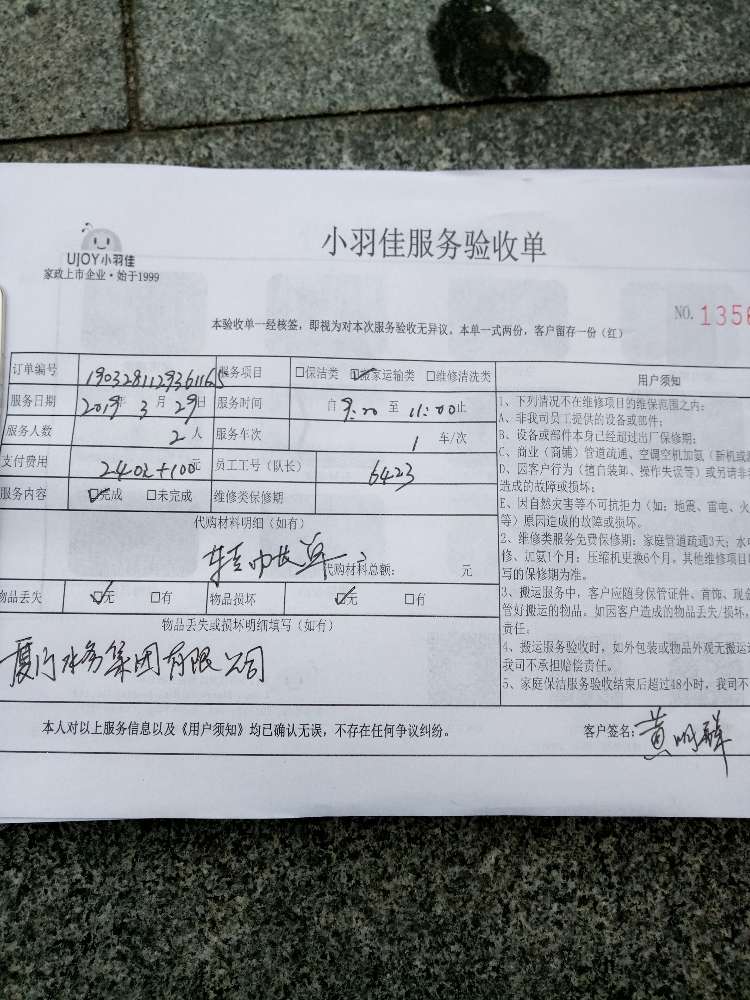 小羽佳服务验收单
UJOY小羽佳
家政上市企业·始于1999
NO. 1356
本验收单一经核签，即视为对本次服务验收无异议。本单一式两份，客户留存一份（红）
订单编号 190328112936116 服务项目 □保洁类 ☑搬家运输类 □维修清洗类
服务日期 2019年 3 月 29日 服务时间 自 9:00 至 11:00止
服务人数 2 人 服务车次 1 车/次
支付费用 240 +100元 员工工号（队长） 6423
服务内容 ☑完成 □未完成 维修类保修期
代购材料明细（如有）
代购材料总额： 元
物品丢失 ☑无 □有 物品损坏 ☑无 □有
物品丢失或损坏明细填写（如有）
厦门水务集团有限公司
用户须知
1、下列情况不在维修项目的维保范围之内：
A、非我司员工提供的设备或部件；
B、设备或部件本身已经超过出厂保修期；
C、商业（商铺）管道疏通、空调空机加氨（新机或
D、因客户行为（擅自装卸、操作失误等）或另请非
造成的故障或损坏；
E、因自然灾害等不可抗拒力（如：地震、雷电、火
等）原因造成的故障或损坏。
2、维修类服务免费保修期：家庭管道疏通3天；水
修、加氨1个月；压缩机更换6个月，其他维修项目
写的保修期为准。
3、搬运服务中，客户应随身保管证件、首饰、现金
管好搬运的物品，如因客户造成的物品丢失/损坏，
责任；
4、搬运服务验收时，如外包装或物品外观无搬运
我司不承担赔偿责任。
5、家庭保洁服务验收结束后超过48小时，我司不
本人对以上服务信息以及《用户须知》均已确认无误，不存在任何争议纠纷。
客户签名：黄明辉